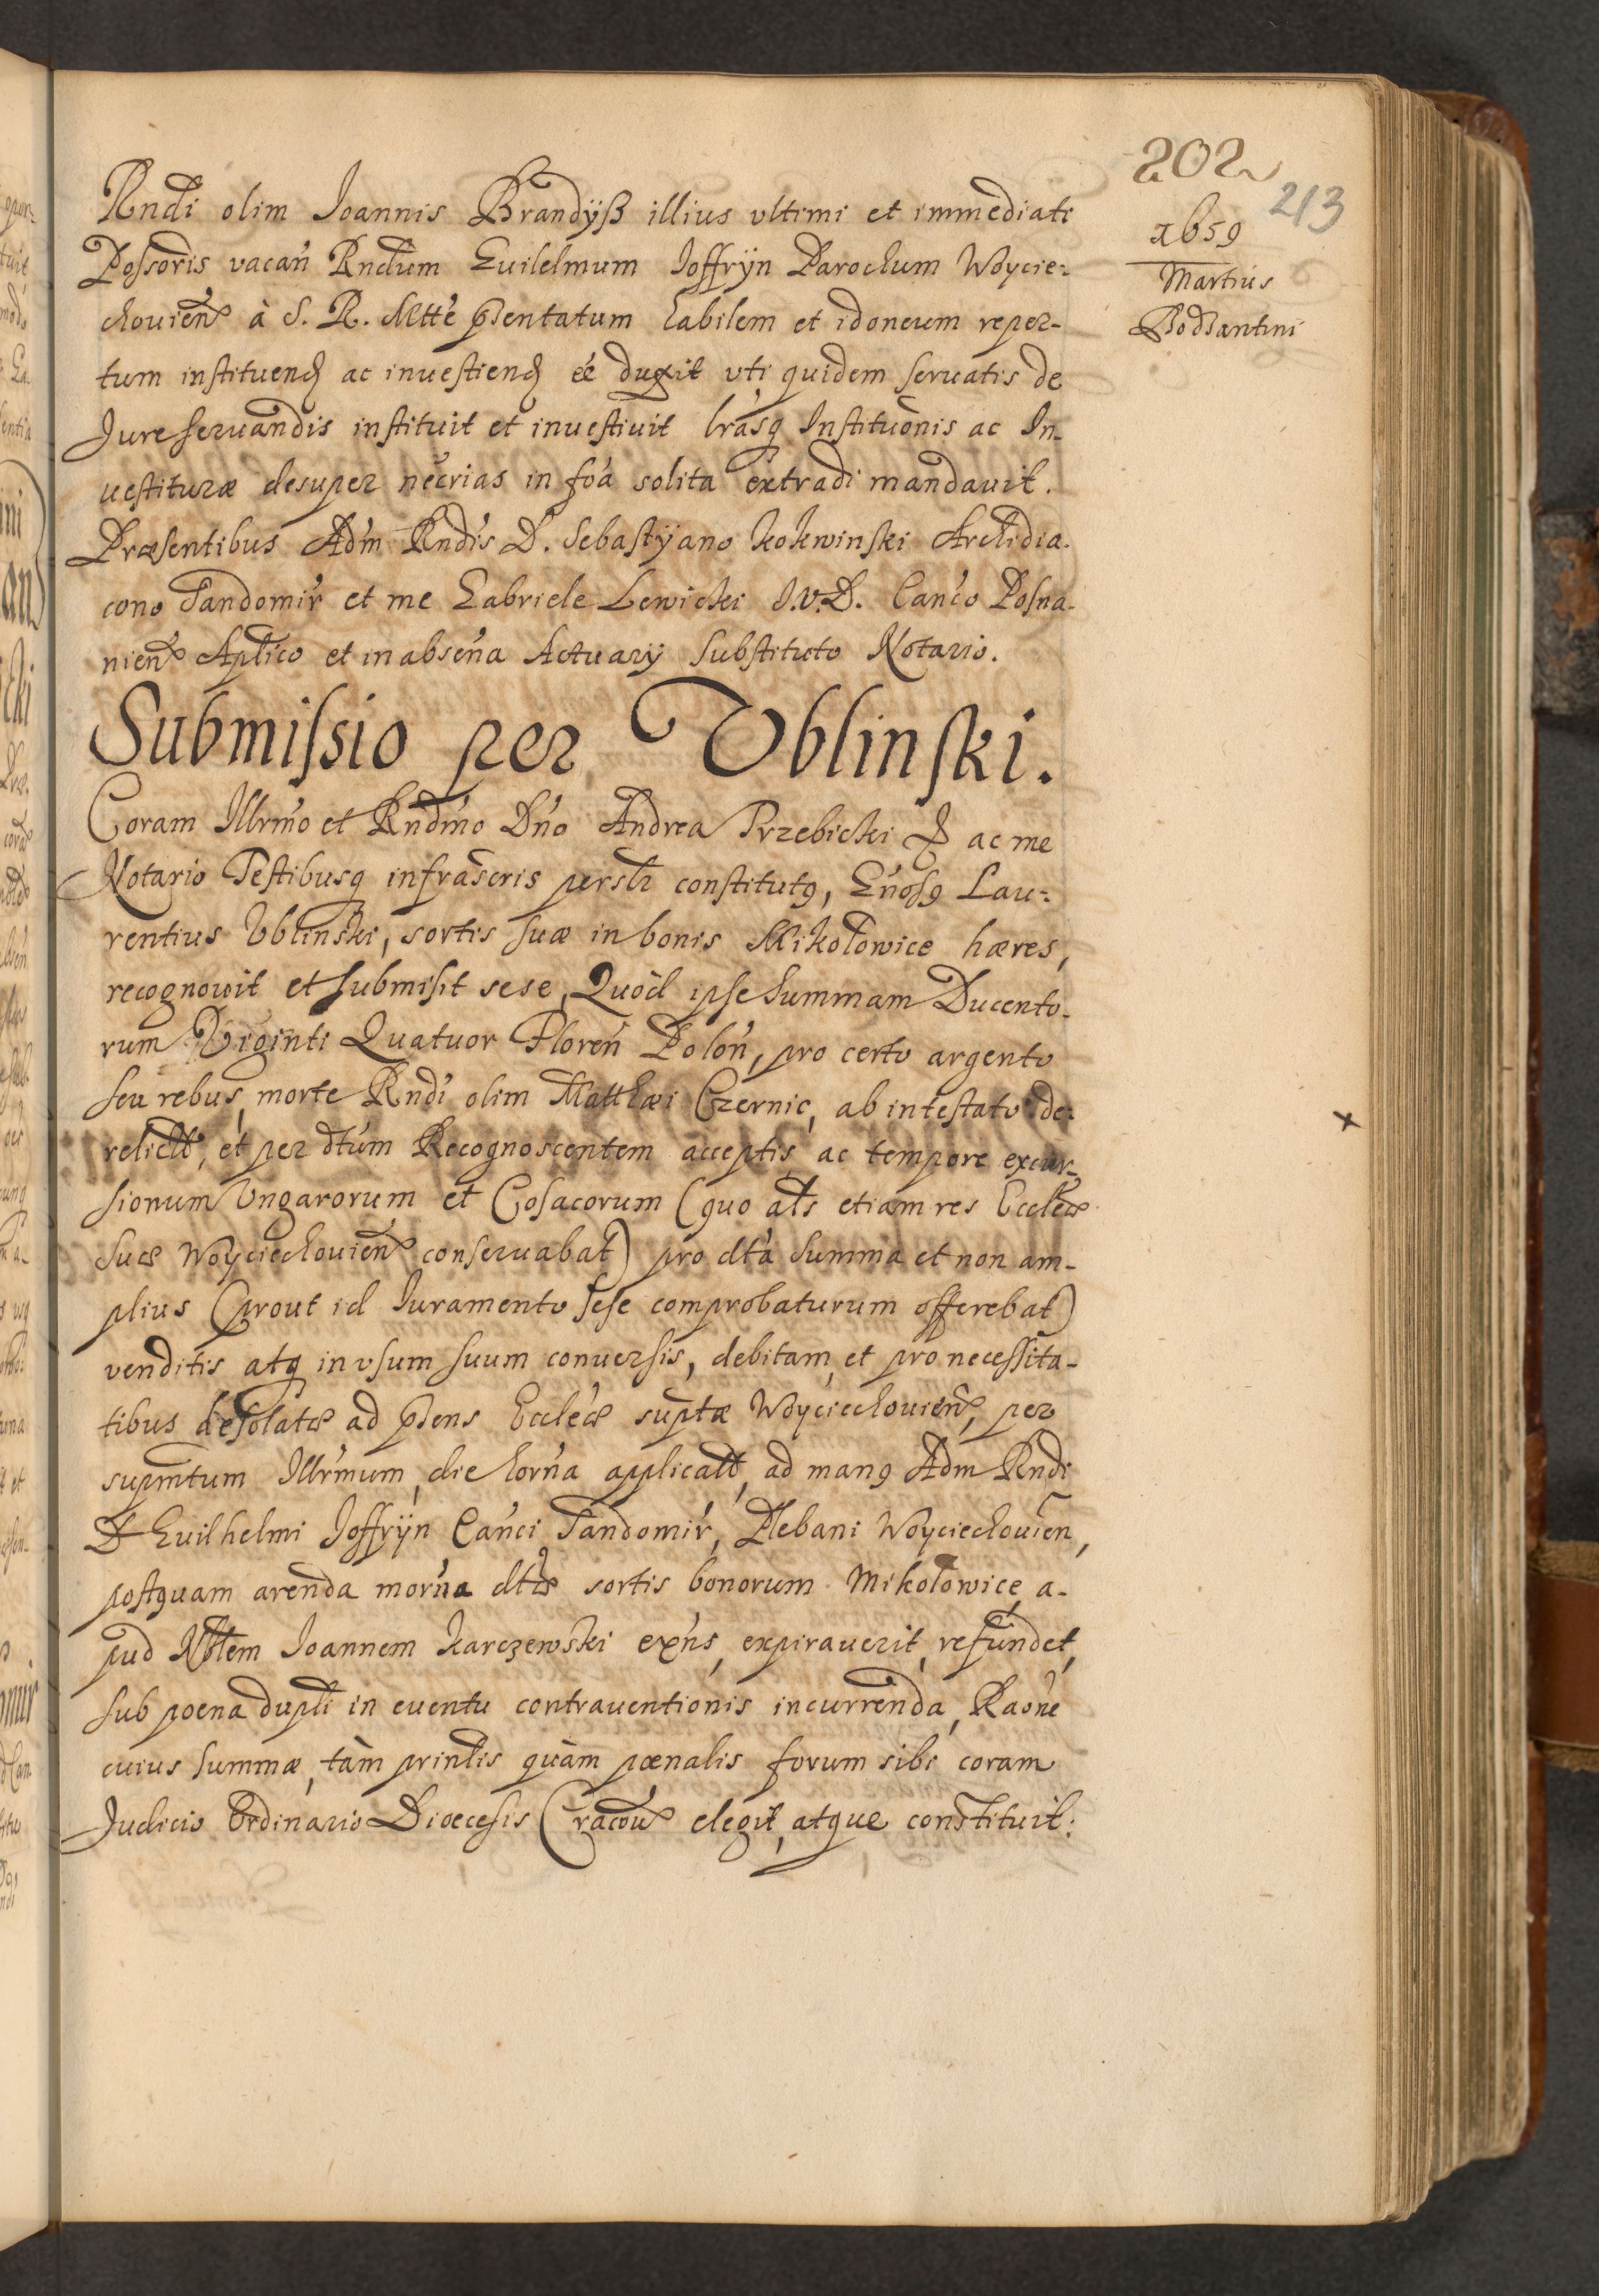 202
213
1659
Martius
Bodzantini
Rndi olim Ioannis Brandÿß illius vltimi et immediati
Possoris vacan̄ Rndum Guilelmum Joffrÿn Parochum Woycie-
chouien̄ à S. R. Mtte pn̄tatum habilem et idoneum reper-
tum instituend ac inuestiend ēē duxit vti quidem seruatis de
Jure seruandis instituit et inuestiuit lrasq Institūonis ac In-
uestituræ desuper necrias in foa solita extradi mandauit.
Præsentibus Adm Rndis D. Sebastÿano Kokwinski Archidia-
cono Sandomir et me Gabriele Lewicki I.V.D. Canco Posna-
nien̄ Aplico et in absen̄a Actuarÿ Substituto Notario.
Submissio per Vblinski.
Coram Illrmo et Rndmo Dno Andrea Trzebicki & ac me
Notario Testibusq infrascris persl̄r constitutꝰ, Gn̄osꝰ Lau-
rentius Vblinski, sortis suæ in bonis Mikołowice hæres,
recognowit et submisit sese, Quòd ipse summam Ducento-
rum Viginti Quatuor Floren̄ Polon̄, pro certo argento
seu rebus, morte Rndi olim Matthæi Czernic, ab intestato de-
relict, et per dtum Recognoscentem acceptis, ac tempore excur-
sionum Vngarorum et Cosacorum (quo als etiam res Eccleæ
suæ Woyciechouien̄ conseruabat) pro dta summa et non am-
plius (prout id Iuramento sese comprobaturum offerebat)
venditis atq in vsum suum conuersis, debitam, et pro necessita-
tibus desolatæ ad pn̄s Eccleæ suptæ Woyciechouien̄, per
supmtum Illrmum, die hor̄na applicat, ad manꝰ Adm Rndi
D Guilhelmi Joffrÿn Canci Sandomir, Plebani Woyciechouien̄,
postquam arenda mor̄na dtæ sortis bonorum Mikołowice, a-
pud Nblem Ioannem Karczewski exn̄s, expirauerit, refundet,
sub poena dupli in euentu contrauentionis incurrenda, Raōne
cuius summæ, tàm prinlis quàm pœnalis forum sibi coram
Judicio Ordinario Dioecesis Cracou elegit, atque constituit.
+